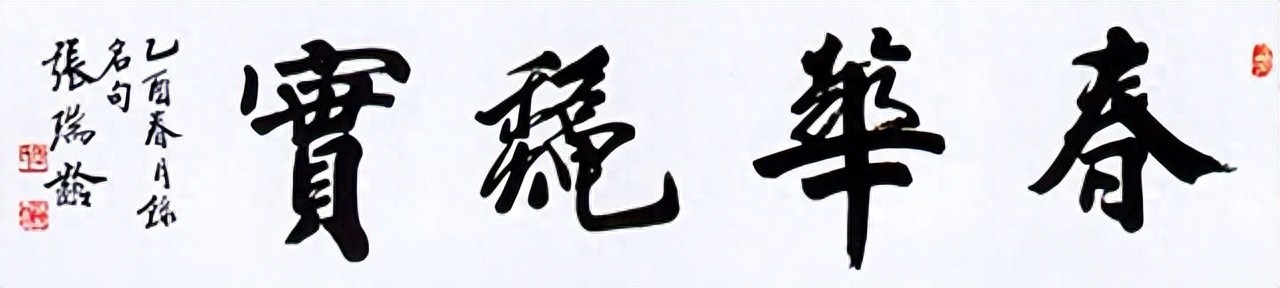 春華龝實
乙酉春月錄
名句
張瑞齡